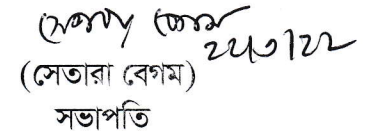 সেতারা বেগম
২২/৩/২২
(সেতারা বেগম)
সভাপতি